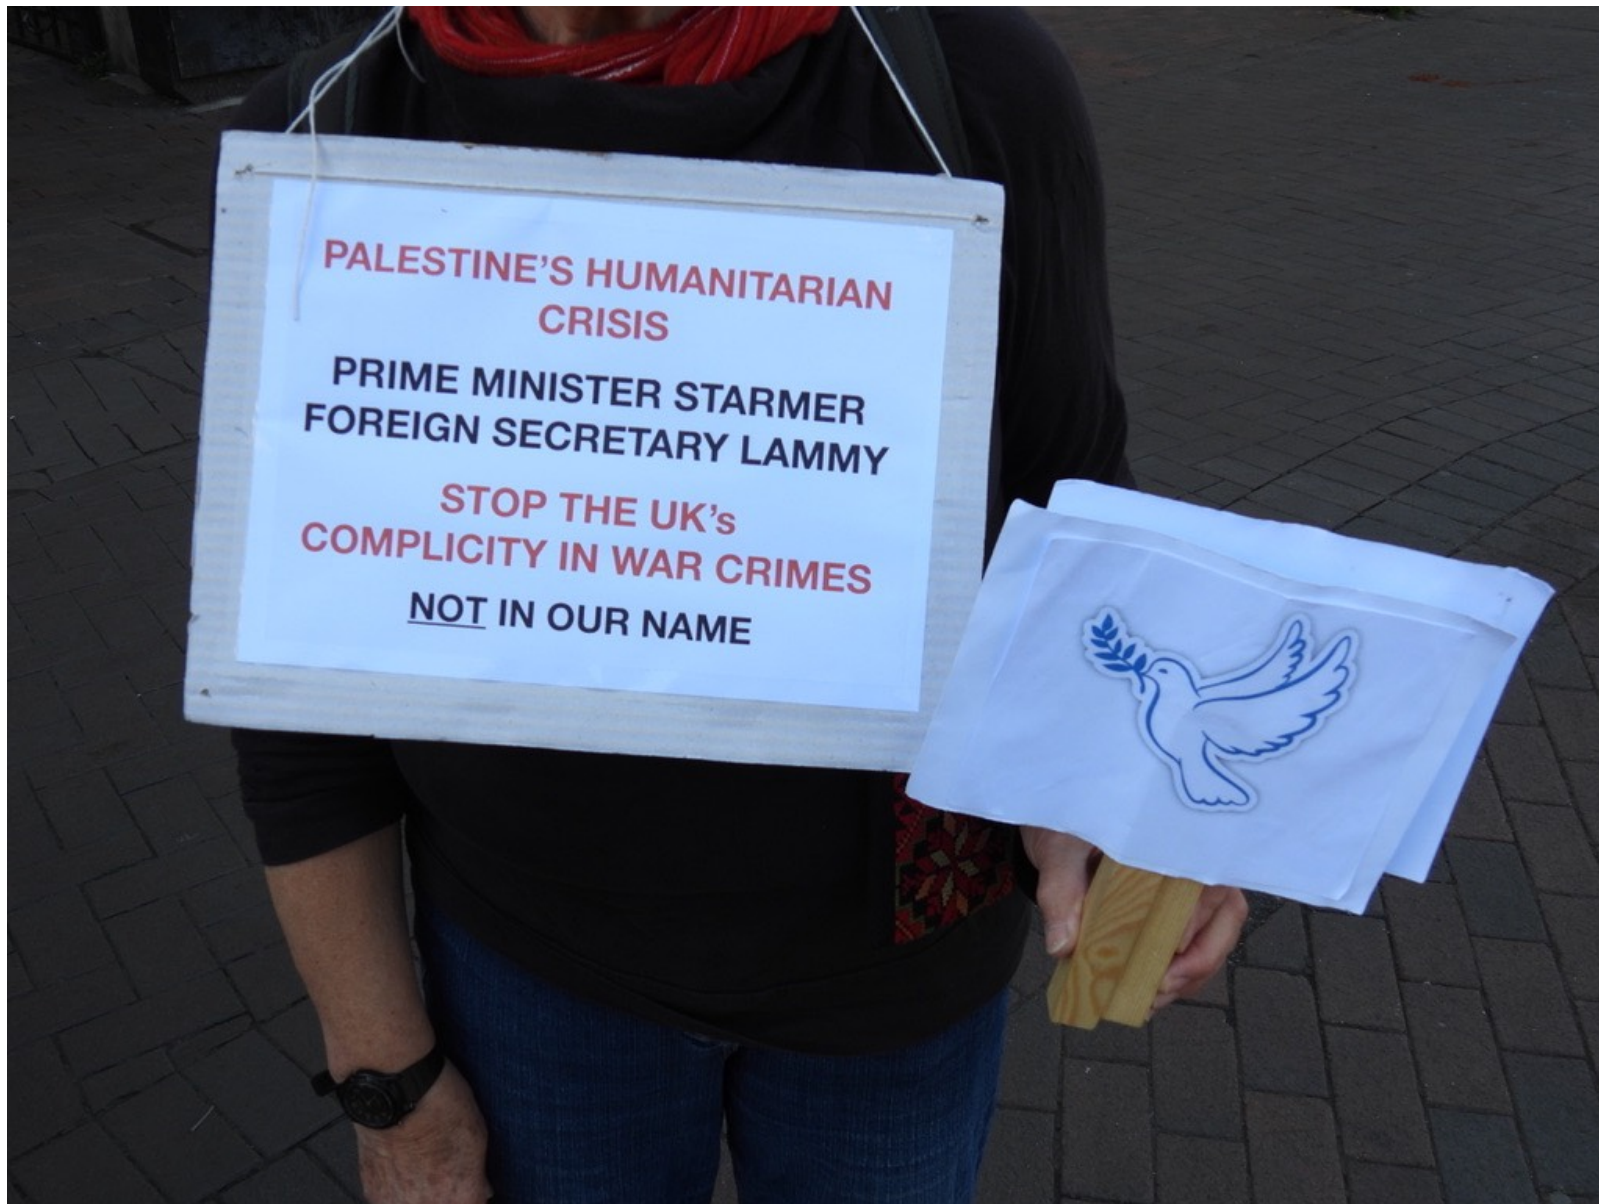 PALESTINE'S HUMANITARIAN
CRISIS
PRIME MINISTER STARMER
FOREIGN SECRETARY LAMMY
STOP THE UK's
COMPLICITY IN WAR CRIMES
NOT IN OUR NAME